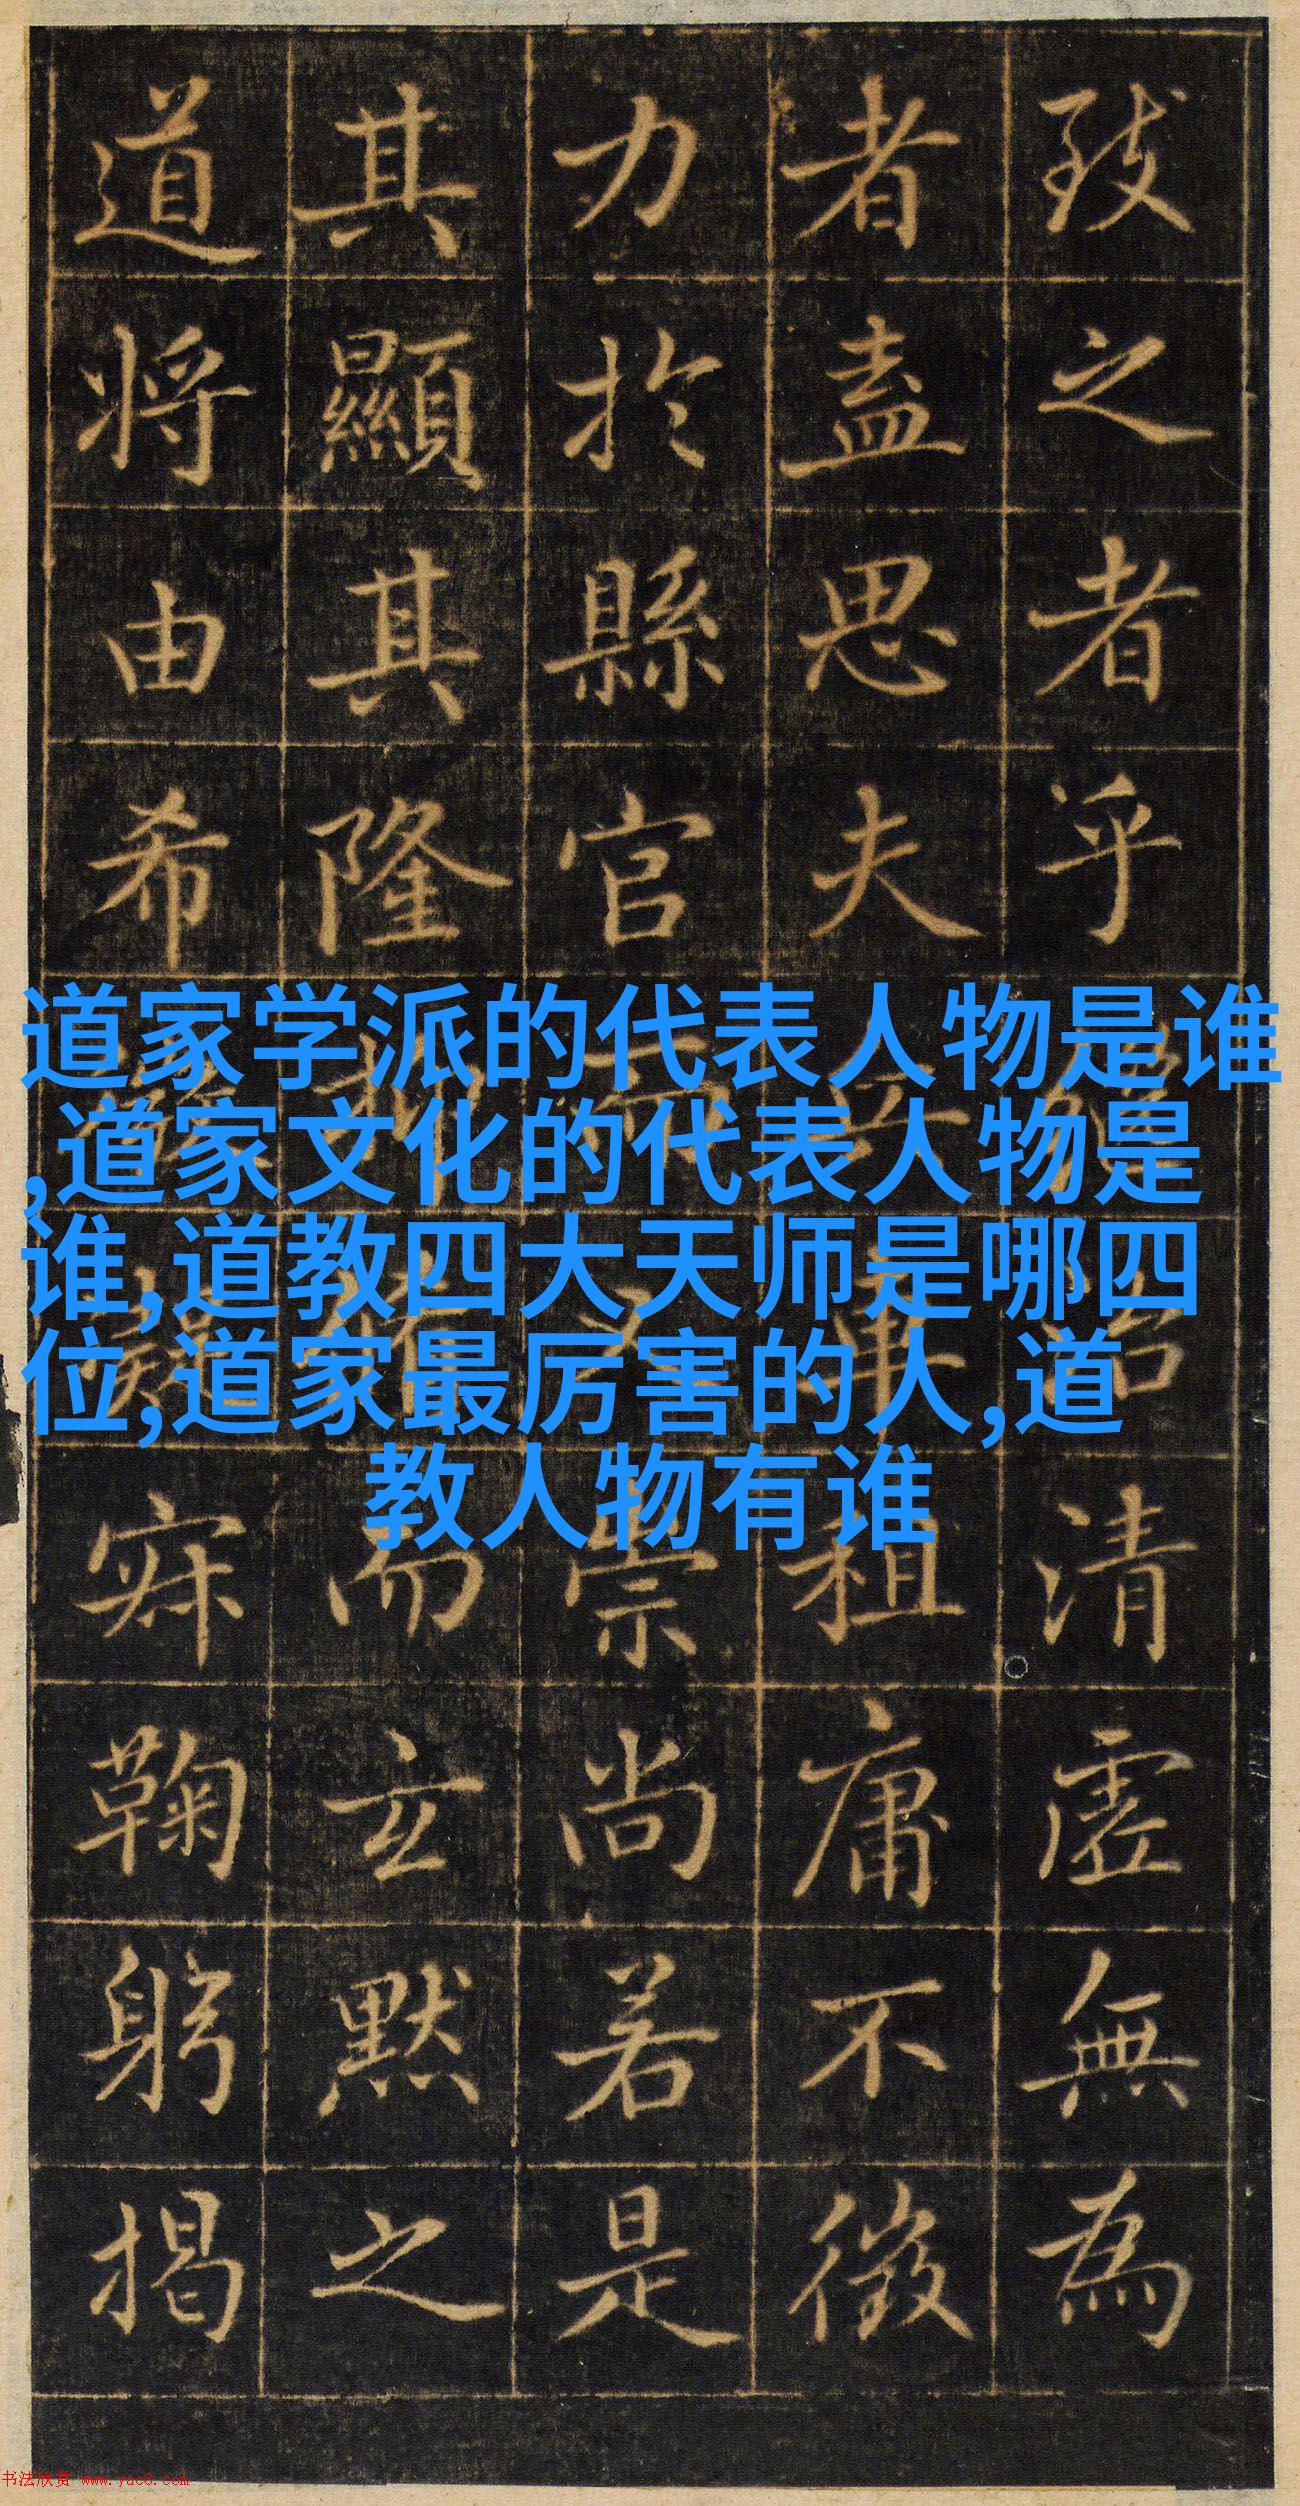 致之者乎清虛無為
者盡思夫兵車租庸不徵
力於縣官崇尚若是
其顯其隆而玄默之
道將由希鞠躬揭
道家学派的代表人物是谁
,道家文化的代表人物是
谁,道教四大天师是哪四
位,道家最厉害的人,道
教人物有谁
书法欣赏 www.yac8.com